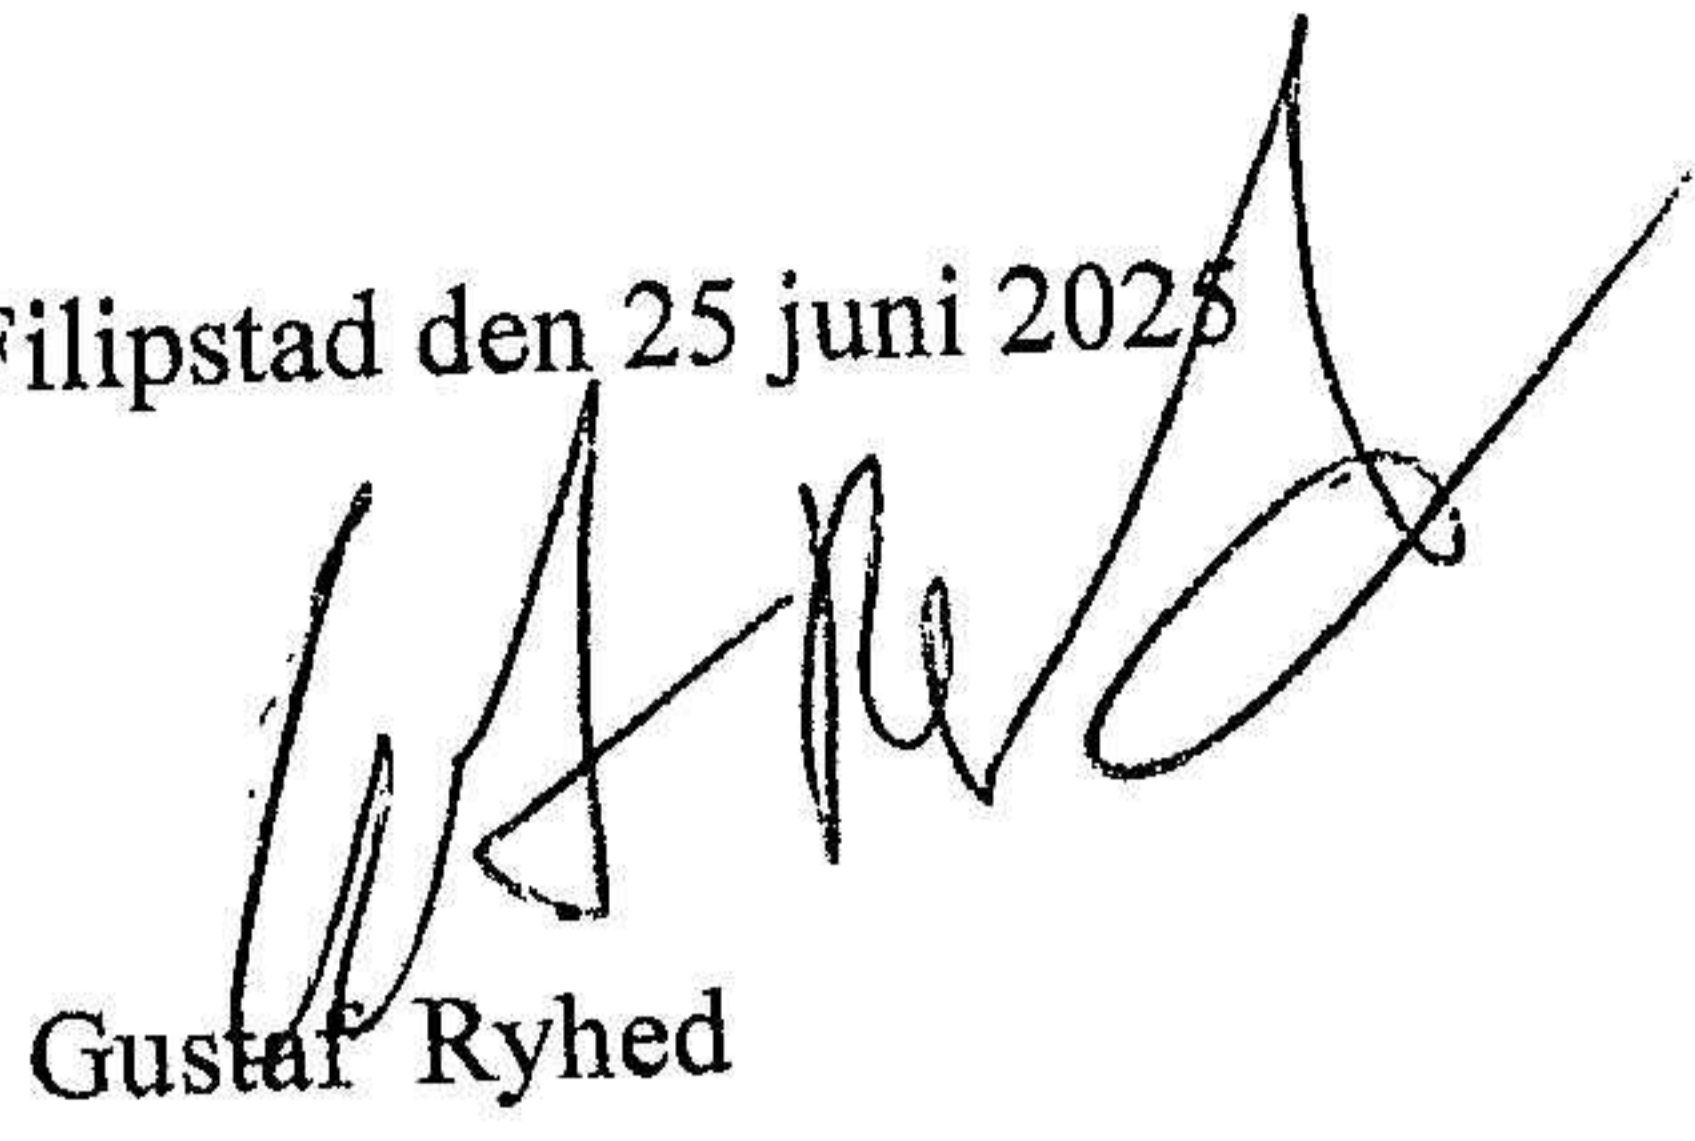 Filipstad den 25 juni 2025
Gustaf Ryhed